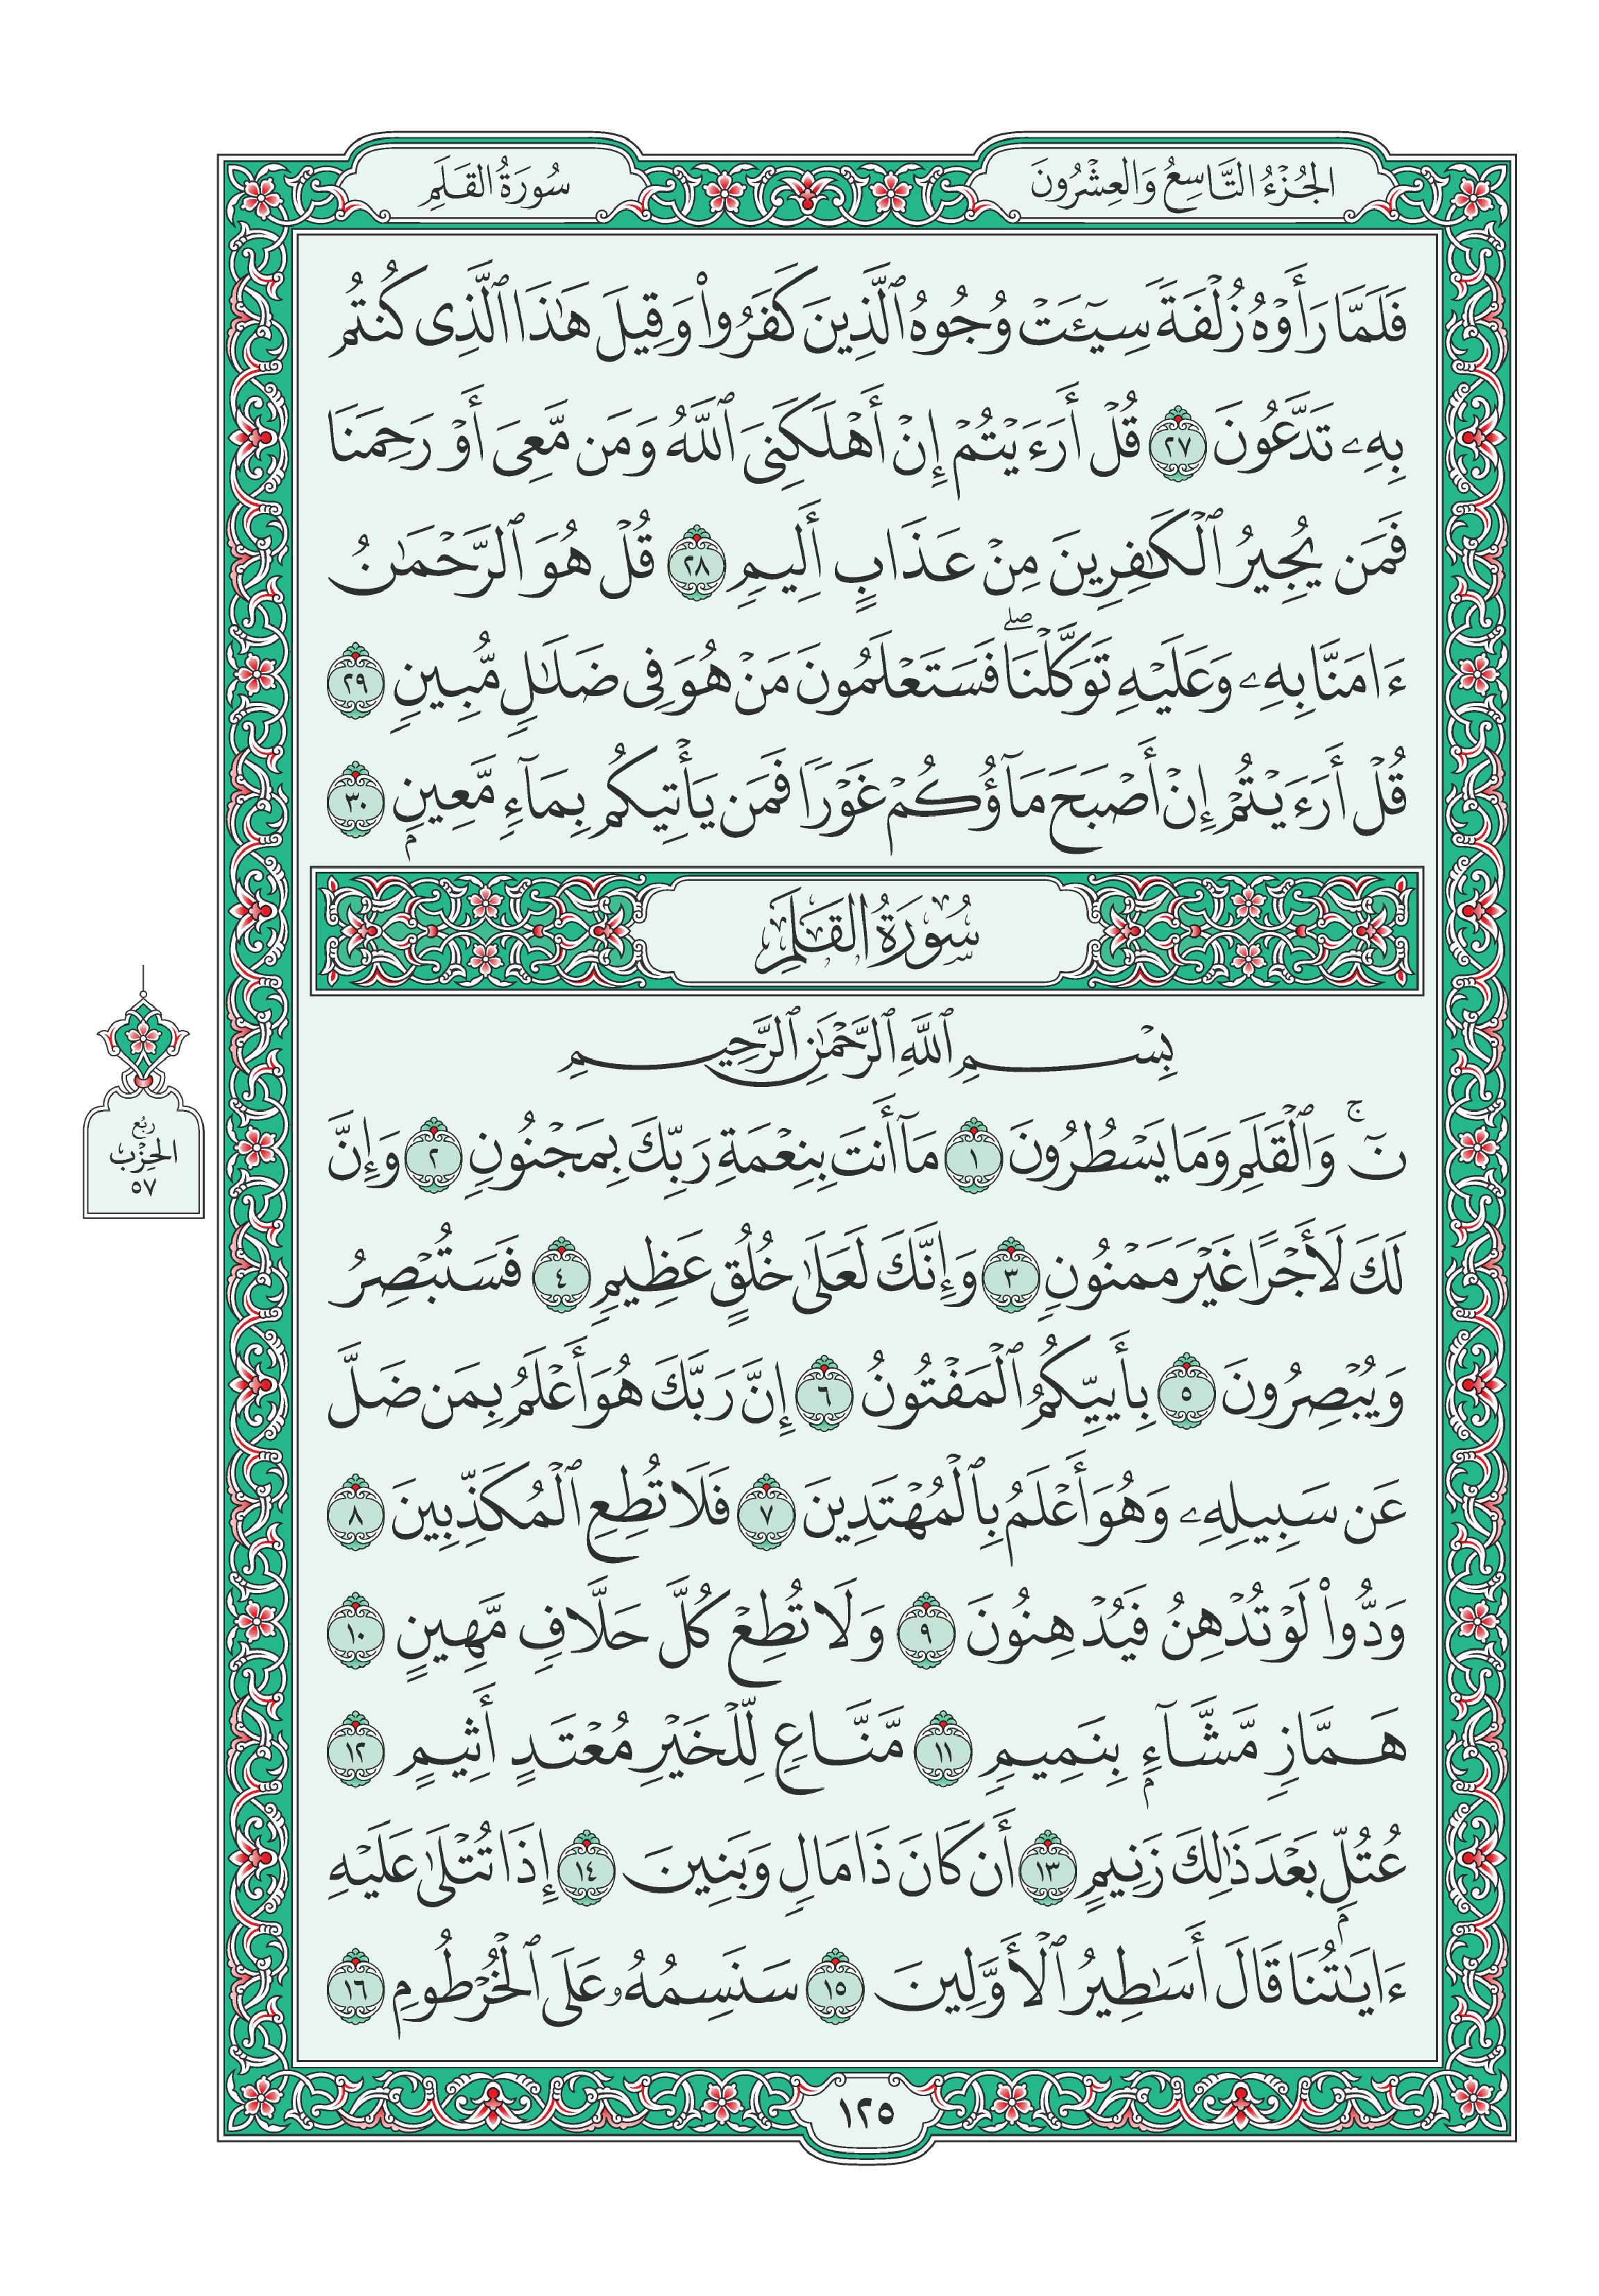 الجُزْءُ التَّاسِعُ وَالعِشْرُونَ
سُورَةُ القَلَمِ
فَلَمَّا رَأَوۡهُ زُلۡفَةٗ سِيٓـَٔتۡ وُجُوهُ ٱلَّذِينَ كَفَرُواْ وَقِيلَ هَٰذَا ٱلَّذِي كُنتُم
بِهِۦ تَدَّعُونَ ٢٧ قُلۡ أَرَءَيۡتُمۡ إِنۡ أَهۡلَكَنِيَ ٱللَّهُ وَمَن مَّعِيَ أَوۡ رَحِمَنَا
فَمَن يُجِيرُ ٱلۡكَٰفِرِينَ مِنۡ عَذَابٍ أَلِيمٖ ٢٨ قُلۡ هُوَ ٱلرَّحۡمَٰنُ
ءَامَنَّا بِهِۦ وَعَلَيۡهِ تَوَكَّلۡنَاۖ فَسَتَعۡلَمُونَ مَنۡ هُوَ فِي ضَلَٰلٖ مُّبِينٖ ٢٩
قُلۡ أَرَءَيۡتُمۡ إِنۡ أَصۡبَحَ مَآؤُكُمۡ غَوۡرٗا فَمَن يَأۡتِيكُم بِمَآءٖ مَّعِينِۭ ٣٠
سُورَةُ القَلَمِ
بِسۡمِ ٱللَّهِ ٱلرَّحۡمَٰنِ ٱلرَّحِيمِ
نٓۚ وَٱلۡقَلَمِ وَمَا يَسۡطُرُونَ ١ مَآ أَنتَ بِنِعۡمَةِ رَبِّكَ بِمَجۡنُونٖ ٢ وَإِنَّ
لَكَ لَأَجۡرًا غَيۡرَ مَمۡنُونٖ ٣ وَإِنَّكَ لَعَلَىٰ خُلُقٍ عَظِيمٖ ٤ فَسَتُبۡصِرُ
وَيُبۡصِرُونَ ٥ بِأَييِّكُمُ ٱلۡمَفۡتُونُ ٦ إِنَّ رَبَّكَ هُوَ أَعۡلَمُ بِمَن ضَلَّ
عَن سَبِيلِهِۦ وَهُوَ أَعۡلَمُ بِٱلۡمُهۡتَدِينَ ٧ فَلَا تُطِعِ ٱلۡمُكَذِّبِينَ ٨
وَدُّواْ لَوۡ تُدۡهِنُ فَيُدۡهِنُونَ ٩ وَلَا تُطِعۡ كُلَّ حَلَّافٖ مَّهِينٍ ١٠
هَمَّازٖ مَّشَّآءِۭ بِنَمِيمٖ ١١ مَّنَّاعٖ لِّلۡخَيۡرِ مُعۡتَدٍ أَثِيمٍ ١٢
عُتُلِّۭ بَعۡدَ ذَٰلِكَ زَنِيمٍ ١٣ أَن كَانَ ذَا مَالٖ وَبَنِينَ ١٤ إِذَا تُتۡلَىٰ عَلَيۡهِ
ءَايَٰتُنَا قَالَ أَسَٰطِيرُ ٱلۡأَوَّلِينَ ١٥ سَنَسِمُهُۥ عَلَى ٱلۡخُرۡطُومِ ١٦
رُبْع
الحِزْب
٥٧
١٢٥